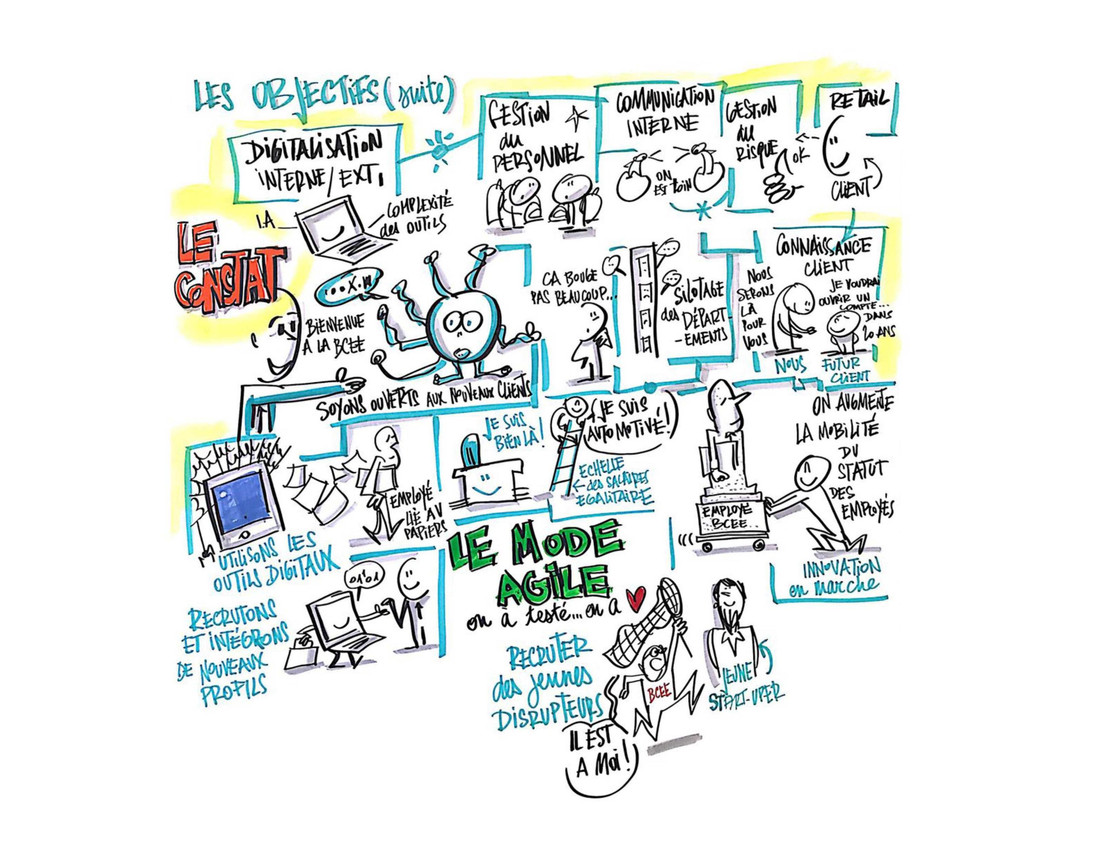 LES OBJECTIFS (suite)
DIGITALISATION
INTERNE/EXT.
GESTION
du
PERSONNEL
COMMUNICATION
INTERNE
GESTION
du
RISQUE
RETAIL
ON
EST LOIN
OK
CLIENT
I.A
COMPLEXITÉ
des OUTILS
LE
CONSTAT
...X.
BIENVENUE
A LA BCEE
SOYONS OUVERTS AUX NOUVEAUX CLIENTS
CA BOUGE
PAS BEAUCOUP...
SILOTAGE
des DÉPART
-EMENTS
CONNAISSANCE
CLIENT
NOUS
SERONS
LÀ
POUR
VOUS
JE VOUDRAI
OUVRIR UN
COMPTE...
DANS
20 ANS
NOUS
FUTUR
CLIENT
UTILISONS LES
OUTILS DIGITAUX
EMPLOYÉ
LIÉ AU
PAPIERS
JE SUIS
BIEN LÀ!
JE SUIS
AUTOMOTIVÉ!
ECHELLE
des SALAIRES
EGALITAIRE
EMPLOYÉ
BCEE
ON AUGMENTE
LA MOBILITÉ
DU
STATUT
DES
EMPLOYÉS
INNOVATION
en marche
RECRUTONS
ET INTÉGRONS
DE NOUVEAUX
PROFILS
0101
LE MODE
AGILE
on a testé...on a
RECRUTER
des jeunes
DISRUPTEURS
BCEE
IL EST
A MOI!
JEUNE
START-UPER